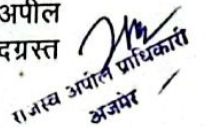 अपील
दग्रस्त
राजस्व अपील प्राधिकारी
अजमेर